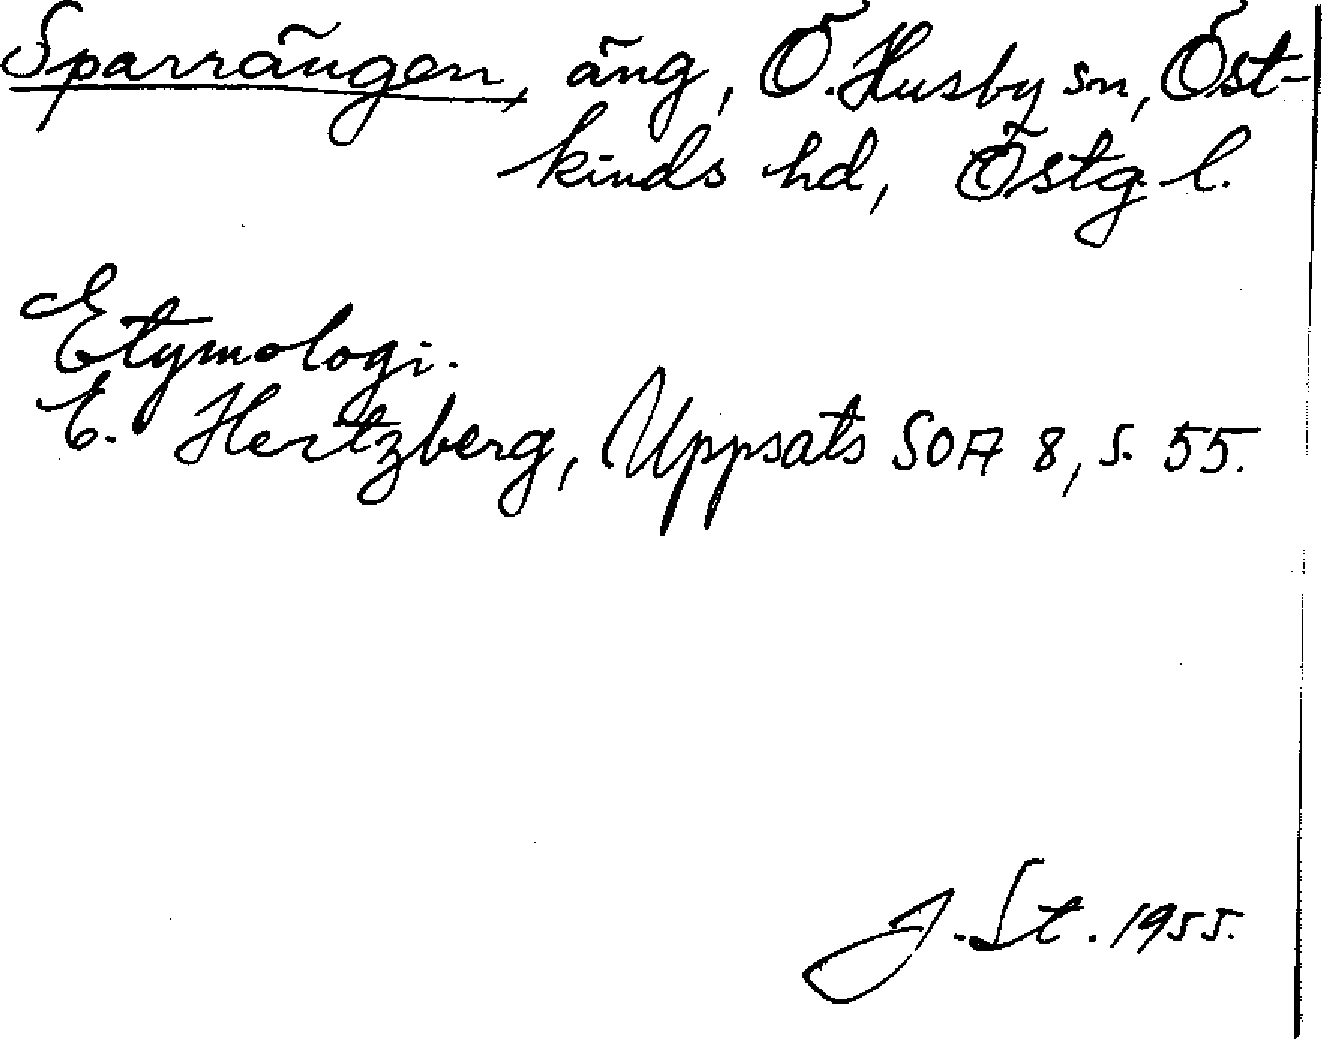 Sparrängen, äng, Ö. Husby sn, Öst-
kinds hd, Östg. l.
Etymologi.
E. Hertzberg, Uppsats SOA 8, s. 55.
J. St. 1955.